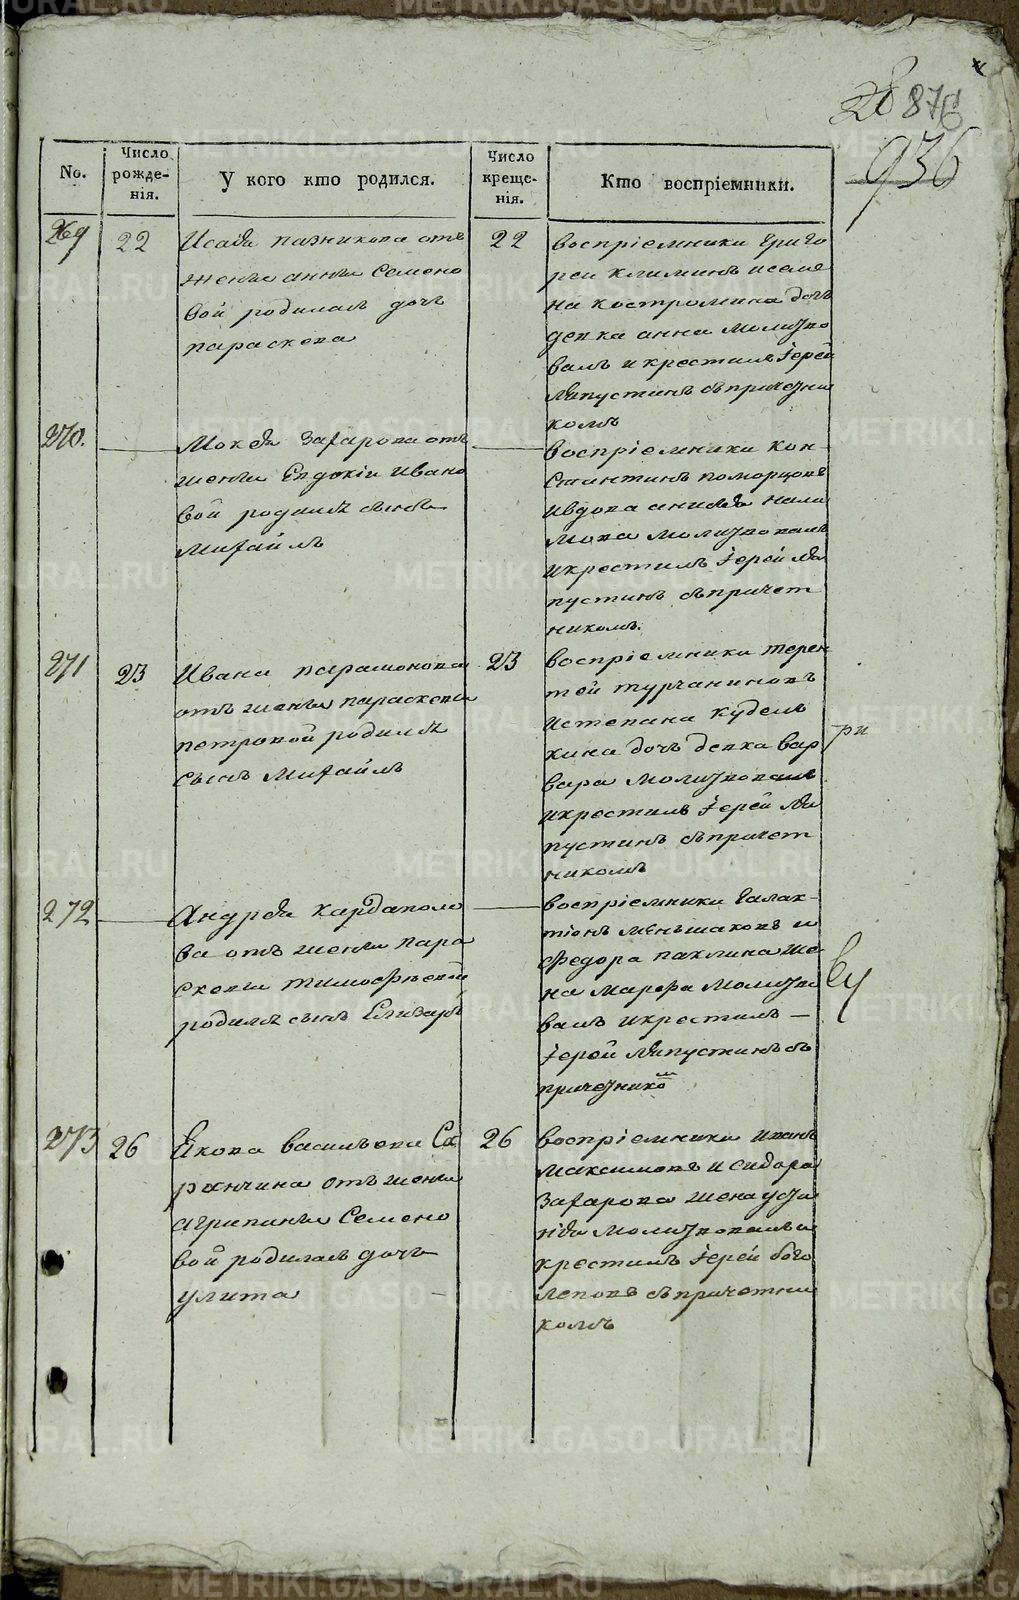 28 876
936
No.
Число рожде-нія.
У кого кто родился.
Число креще-нія.
Кто воспріемники.
269
22
Исаія пазникова отъ
жены анны Семено
вой родилась дочь
параскева
22
воспріемники Григо
реи Климинъ и семе
на костромина дочь
девка анна молитво
валъ и крестилъ Іерей
Ляпустинъ съ причетни
комъ
270.
Мокея Захарова отъ
жены Евдокіи Ивано
вой родился сынъ
Михаилъ
воспріемники Кон-
стантинъ поморцовъ
и вдова
молитвовалъ
и крестилъ Іерей Ля
пустинъ съ причет
никомъ.
271
23
Ивана парамонова
отъ жены параскевы
петровой родился
сынъ Михаилъ
23
воспріемники терен
тей турчаниновъ
и степана Кудель
кина дочь девка вар
вара молитвовалъ
и крестилъ Іерей Ля
пустинъ съ причет
никомъ
ри
272
Андрея Кардаполо
ва отъ жены пара
скевы тимофѣевой
родился сынъ Елизаръ
воспріемники Галак-
тіонъ меньшаковъ и
федора паклина же
на марфа молитво
валъ и крестилъ —
Іерей Ляпустинъ съ
причетникомъ
273
26
Якова васильева Са
ранчина отъ жены
агрипины Семено
вой родилась дочь
улита
26
воспріемники иванъ
максимовъ и сидора
Захарова жена усти
нія молитвовалъ и
крестилъ Іерей бого
леповъ съ причетни
комъ
METRIKI.GASO-URAL.RU